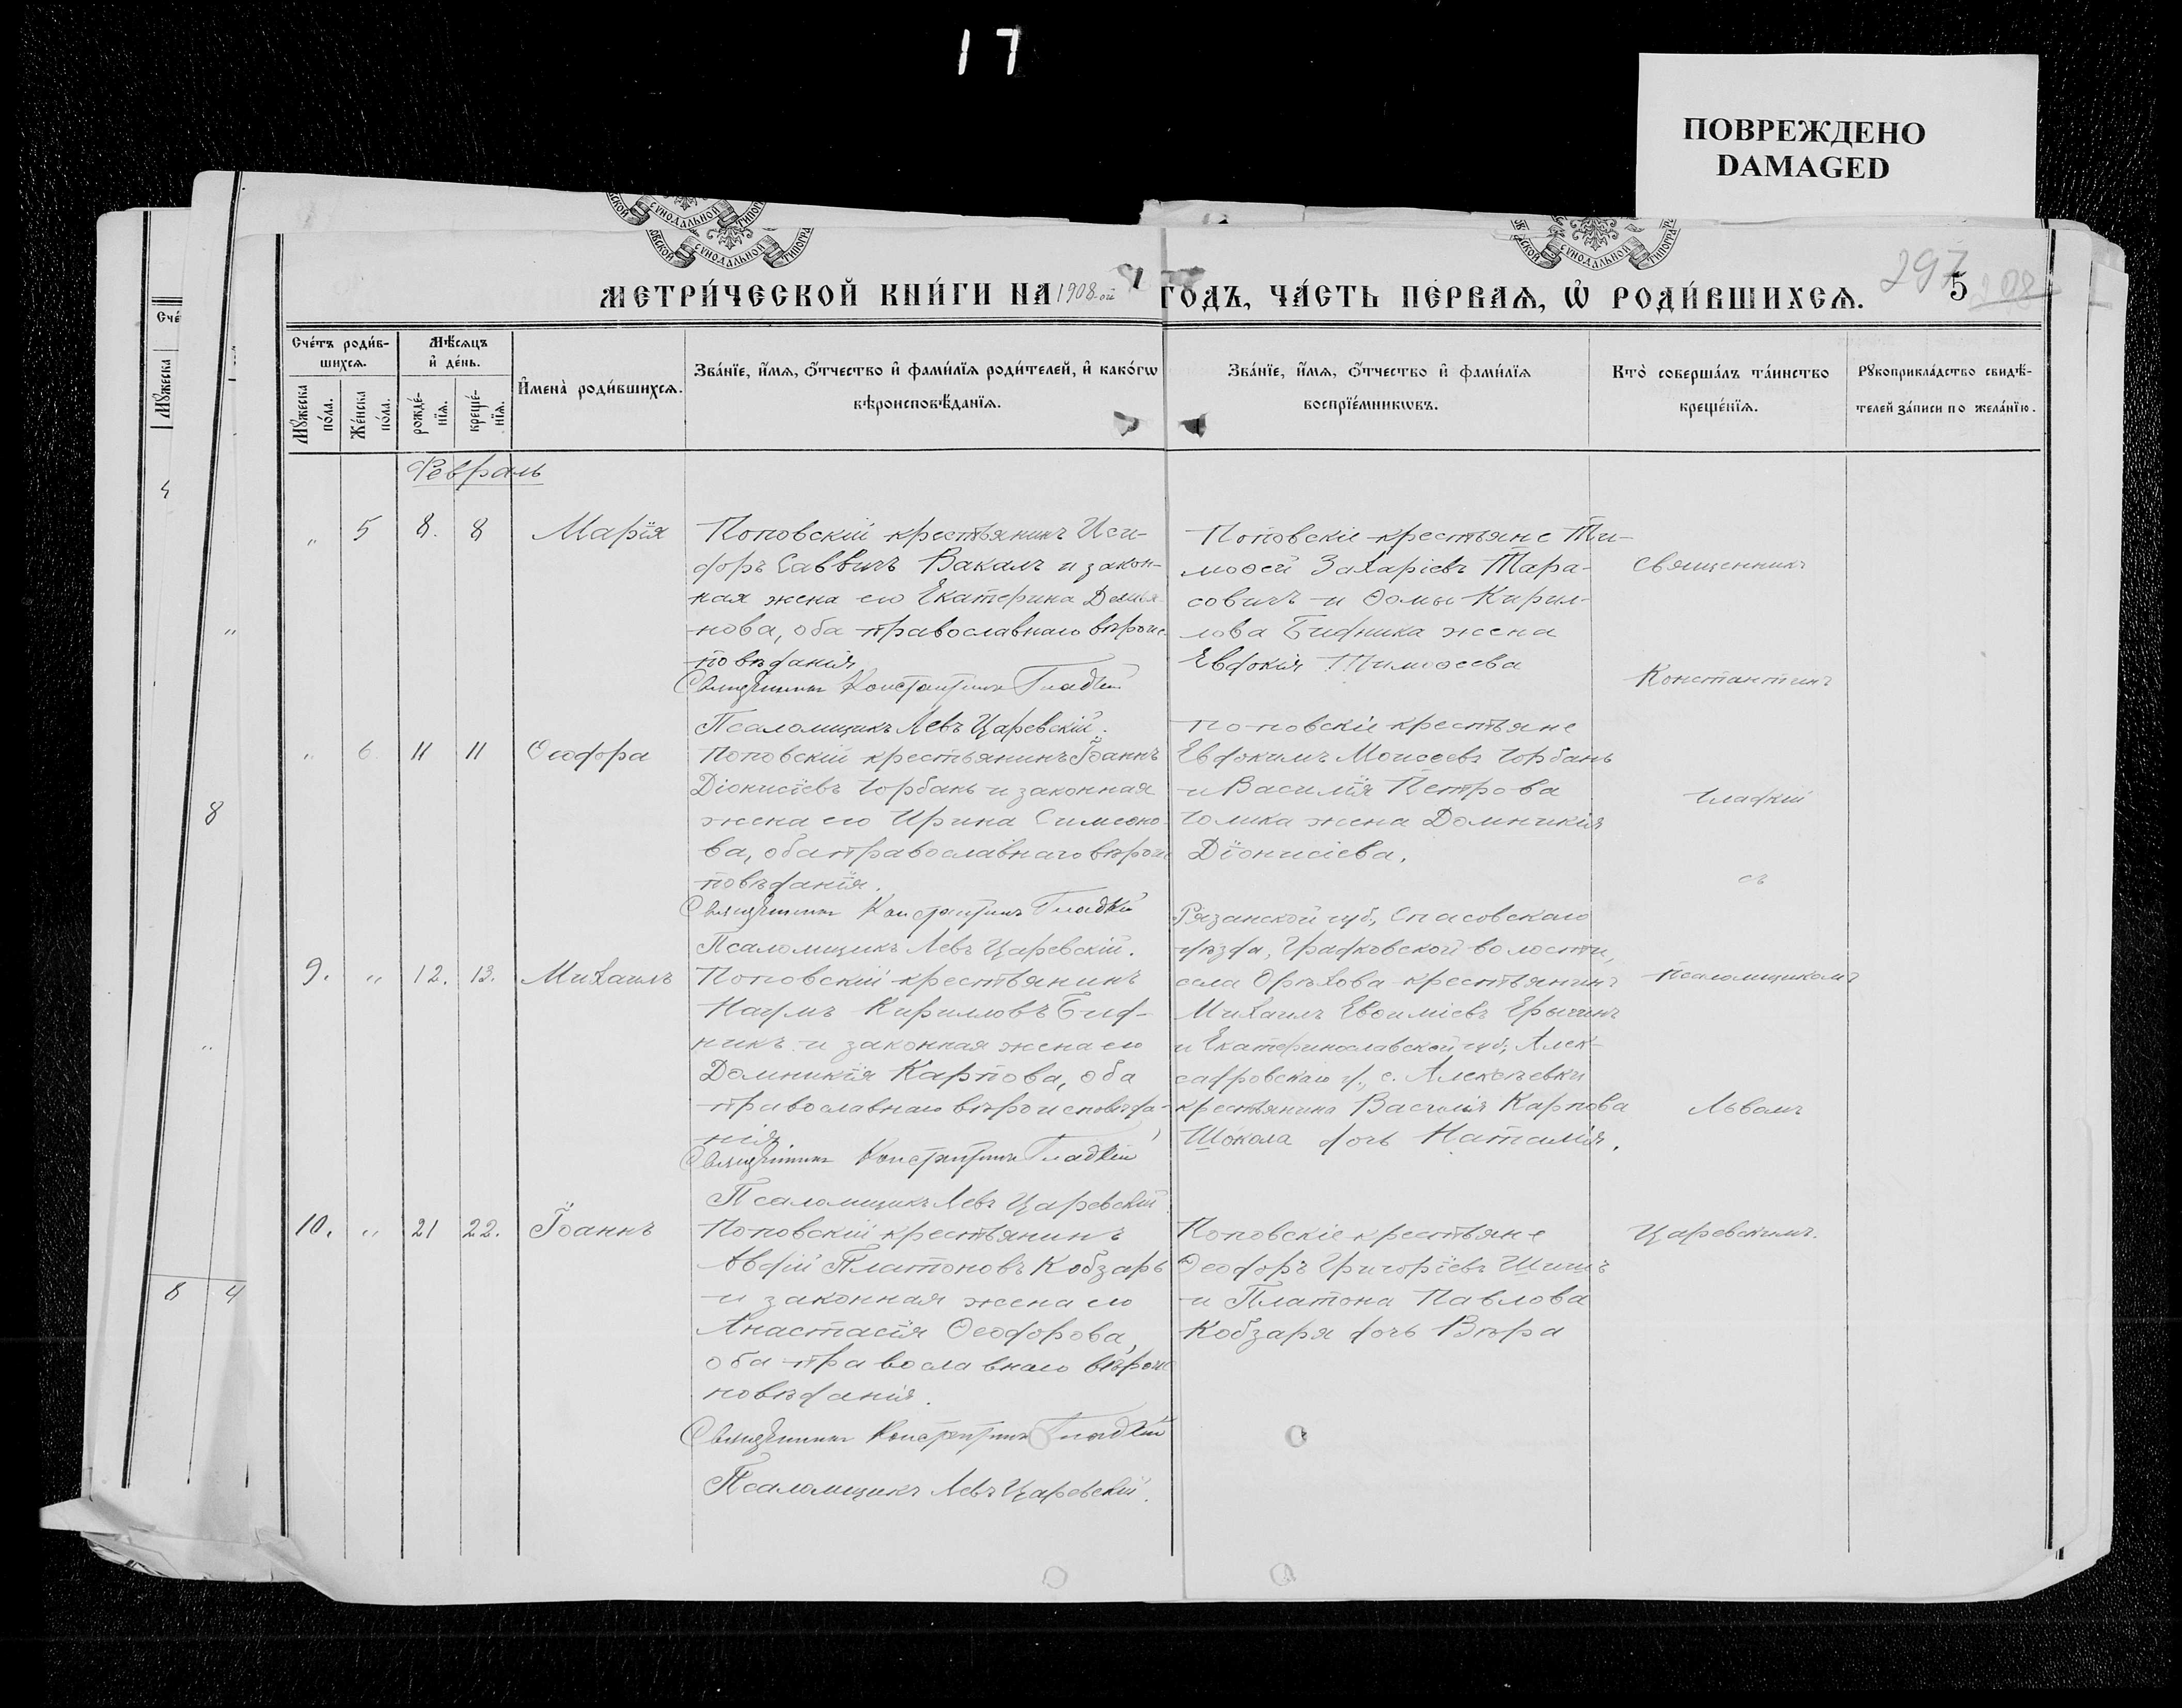 17
ПОВРЕЖДЕНО
DAMAGED
МЕТРИ́ЧЕСКОЙ КНИ́ГИ НА 1908-ой ГОДЪ, ЧА́СТЬ ПЕ́РВАѦ, Ѽ РОДИ́ВШИХСѦ.
297
5
Сче́тъ роди́в-
шихсѧ.
Мꙋ́жеска по́ла.
Же́нска по́ла.
Мѣ́сѧцъ
и҆ де́нь.
рожде́-
нїѧ.
креще́-
нїѧ.
И҆мена̀ роди́вшихсѧ.
Зва́нїе, и҆́мѧ, ѻ҆́тчество и҆ фами́лїѧ роди́телей, и҆ како́гѡ
вѣроисповѣ́данїѧ.
Зва́нїе, и҆́мѧ, ѻ҆́тчество и҆ фами́лїѧ
воспрїе́мникѡвъ.
Кто̀ соверша́лъ та́инство
креще́нїѧ.
Рꙋкоприкла́дство свидѣ́-
телей за́писи по жела́нїю.
Февраль
„ 5 8. 8 Марія
Поповскій крестьянинъ Иси-
форъ Саввичъ Вакалъ и закон-
ная жена его Екатерина Демья
нова, оба православнаго вѣроис
повѣданія
Священникъ Константинъ Гладкій
Псаломщикъ Левъ Царевскій.
Поповскіе крестьяне Ти-
моѳей Захаріевъ Тара-
совичъ и Ѳомы Кирил-
лова Бидника жена
Евдокія Тимоѳеева
Священникъ
Константинъ
Гладкій
съ
псаломщикомъ
Львомъ
Царевскимъ.
„ 6 11 11 Ѳеодора
Поповскій крестьянинъ Іоаннъ
Діонисіевъ Горбань и законная
жена его Ирина Симеоно-
ва, оба православнаго вѣрои
повѣданія.
Священникъ Константинъ Гладкій
Псаломщикъ Левъ Царевскій.
Поповскіе крестьяне
Евдокимъ Моисеевъ Горбань
и Василія Петрова
Голика жена Домникія
Діонисіева.
9. „ 12. 13. Михаилъ
Поповскій крестьянинъ
Наумъ Кирилловъ Бид-
никъ и законная жена его
Домникія Карпова, оба
православнаго вѣроисповѣда-
нія,
Священникъ Константинъ Гладкій
Псаломщикъ Левъ Царевскій
Рязанской губ., Спасовскаго
уѣзда, Градковской волости,
села Орѣхова крестьянинъ
Михаилъ Евѳиміевъ Ерычинъ
и Екатеринославской губ., Алек-
садровскаго у., с. Алексѣевки
крестьянина Василія Карпова
Шокола дочь Наталія.
10. „ 21 22. Іоаннъ
Поповскій крестьянинъ
Авдій Платоновъ Кобзарь
и законная жена его
Анастасія Ѳеодорова,
оба православнаго вѣроис
повѣданія.
Священникъ Константинъ Гладкій
Псаломщикъ Левъ Царевскій.
Поповскіе крестьяне
Ѳеодоръ Григоріевъ Шишъ
и Платона Павлова
Кобзаря дочь Вѣра
8
8 4